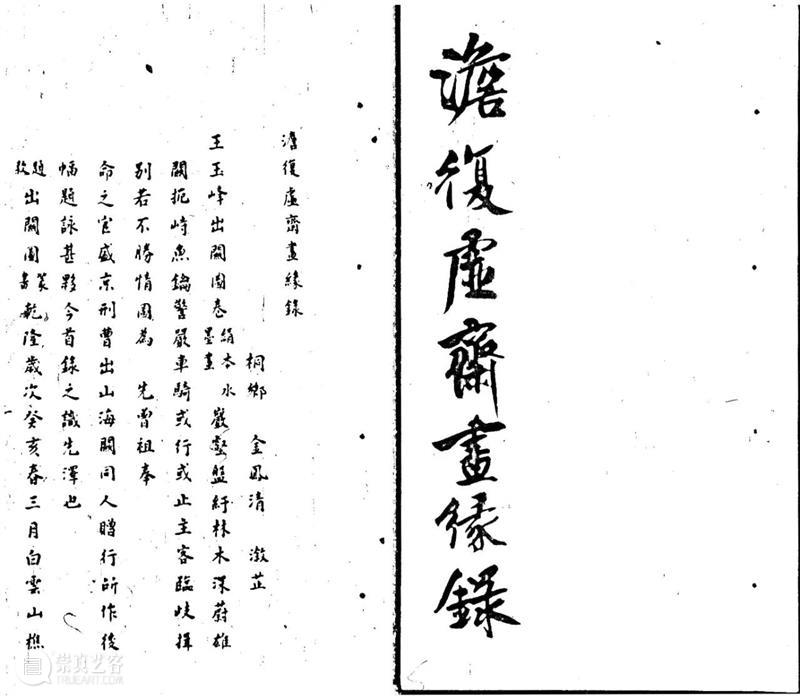 澹復虛齋畫緣錄
澹復虛齋畫緣錄
桐鄉 金鳳清 澂芷
王玉峰出關圖卷絹本水墨畫巖壑盤紆林木深蔚雄
關扼峙魚鑰警嚴車騎或行或止主客臨歧揖
別若不勝情圖為 先曾祖奉
命之官盛京刑曹出山海關同人贈行所作後
幅題詠甚夥今首錄之識先澤也
題款出關圖篆書乾隆歲次癸亥春三月白雲山樵
崇真艺客
TRUEART.COM